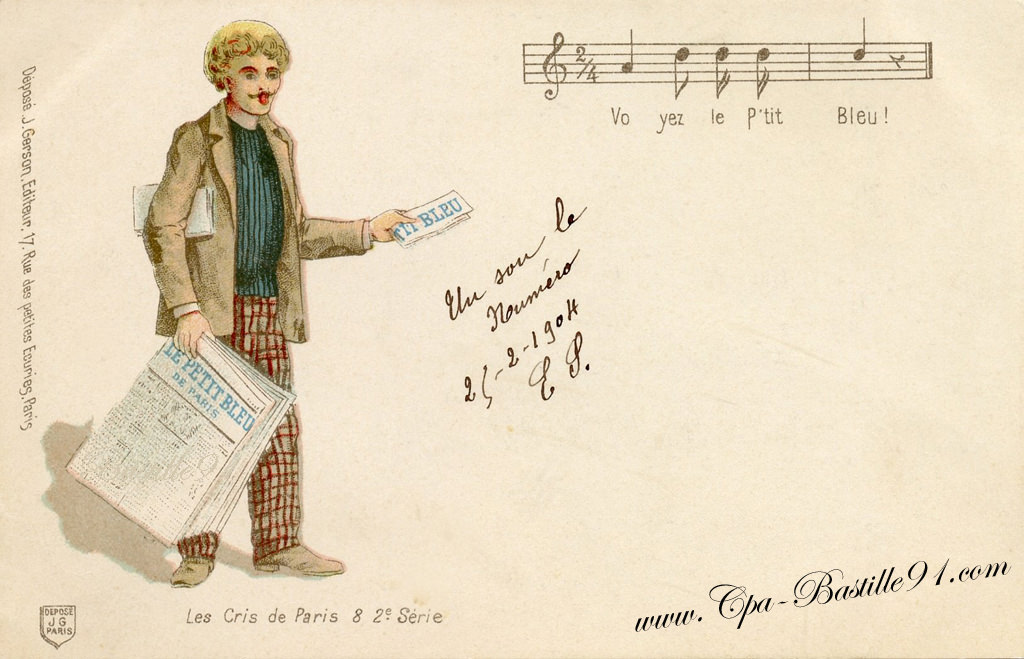 Déposé. J. Gerson, Editeur. 17, Rue des petites Ecuries, Paris
2/4
Vo yez le P'tit Bleu!
TIT BLEU
Un sou le
Nouméro
25-2-1904
E S.
LE PETIT BLEU
DE PARIS
Les Cris de Paris 8 2e Série
DEPOSE
JG
PARIS
www.Cpa-Bastille91.com